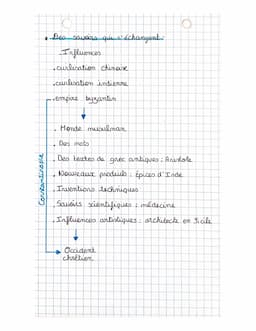 • Des savoirs qui s'échangent :
Influences
. civilisation chinoise
. civilisation indienne
. empire byzantin
. Monde musulman
. Des mots
. Des textes de grec antiques : Aristote
. Nouveaux produits : Épices d'Inde
. Inventions techniques
. Savoirs scientifiques : médecine
. Influences artistiques : architecte en Sicile
Occident
chrétien